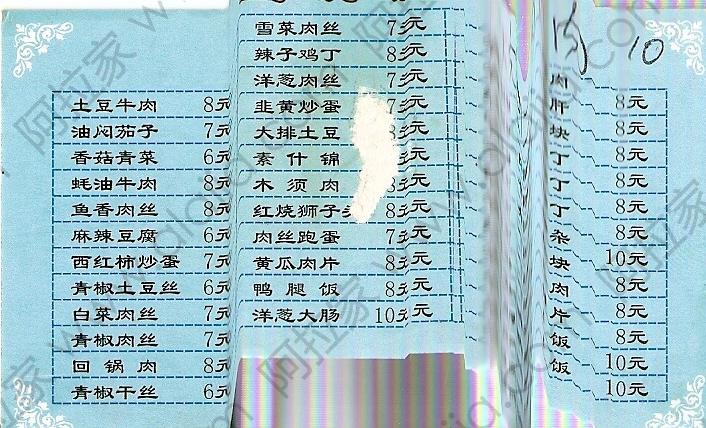 土豆牛肉 8元
油闷茄子 7元
香菇青菜 6元
蚝油牛肉 8元
鱼香肉丝 8元
麻辣豆腐 6元
西红柿炒蛋 7元
青椒土豆丝 6元
白菜肉丝 7元
青椒肉丝 7元
回锅肉 8元
青椒干丝 6元
雪菜肉丝 7元
辣子鸡丁 8元
洋葱肉丝 7元
韭黄炒蛋 7元
大排土豆 8元
素什锦 元
木须肉 元
红烧狮子 8元
肉丝跑蛋 7元
黄瓜肉片 8元
鸭腿饭 8元
洋葱大肠 10元
10
肉 8元
肝 8元
块 8元
丁 8元
丁 8元
丁 8元
杂 10元
块 8元
肉 8元
片 8元
饭 10元
饭 10元
阿拉家